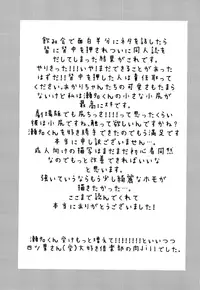 飲み会で面白半分にネタを話したら
皆に背中を押されついに同人誌を
だしてしまった結果がこれです。
やりきった!!いや!まだできることがあった
はず!!背中を押した人は責任取って
くださいね。あかちゃんたちの可愛さもたまら
ないけど私は瀬名くんの小さな小尻が
最高にスキです。
劇場版でも尻ちっさ!!って思ったくらい
彼は小尻ですよね。触って欲しいんですかね?
瀬名くんを好き勝手できたのでもう満足です
本当に申し訳ございません…。
成人向けの描写はまだまだ初心者同然
なのでもっと改善できればいいな
と思います。
強いていうならもう少し綺麗なホモが
描きたかった…。
ここまで読んでくれて
本当にありがとうございました!
瀬名くん受けもっと増えて!!!!!!!といいつつ